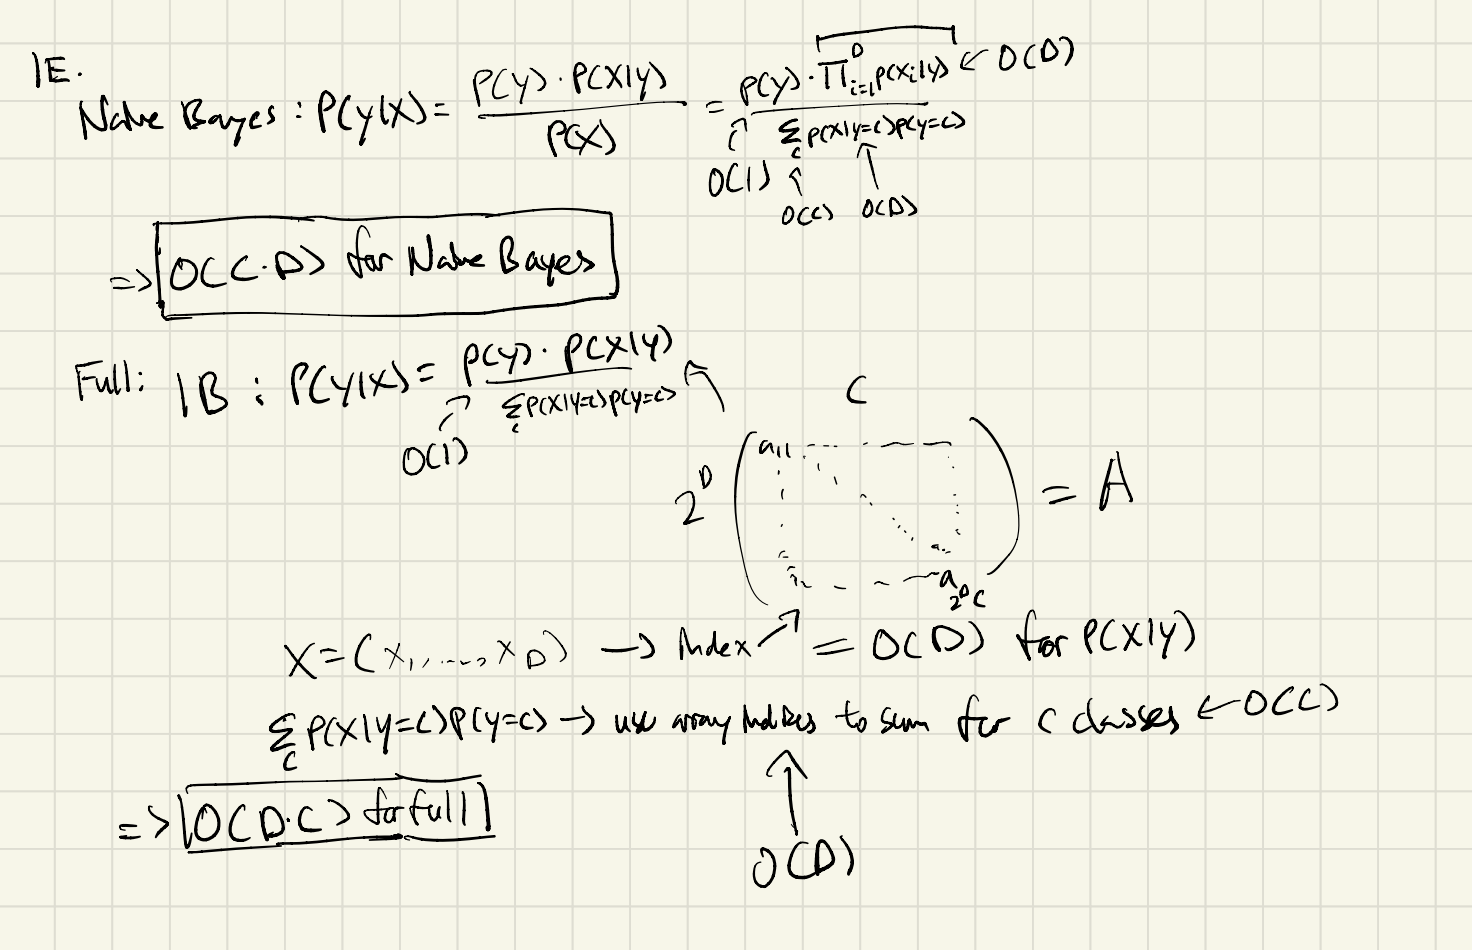 1E.
Naive Bayes : P(y|X) = P(y) · P(X|y) / P(X) = P(y) · ∏_{i=1}^{D} P(x_i|y) / Σ_c P(X|y=c)P(y=c) ← O(D)
O(1) O(C) O(D)
=> O(C·D) for Naive Bayes
Full: 1B : P(y|X) = P(y) · P(X|y) / Σ_c P(X|y=c)P(y=c)
O(1)
C
2^D ( a_11 ... a_{2^D C} ) = A
X = (x_1, ..., x_D) → Index = O(D) for P(X|y)
Σ_c P(X|y=c)P(y=c) → use array indices to sum for C classes ← O(C)
=> O(D·C) for full
O(D)